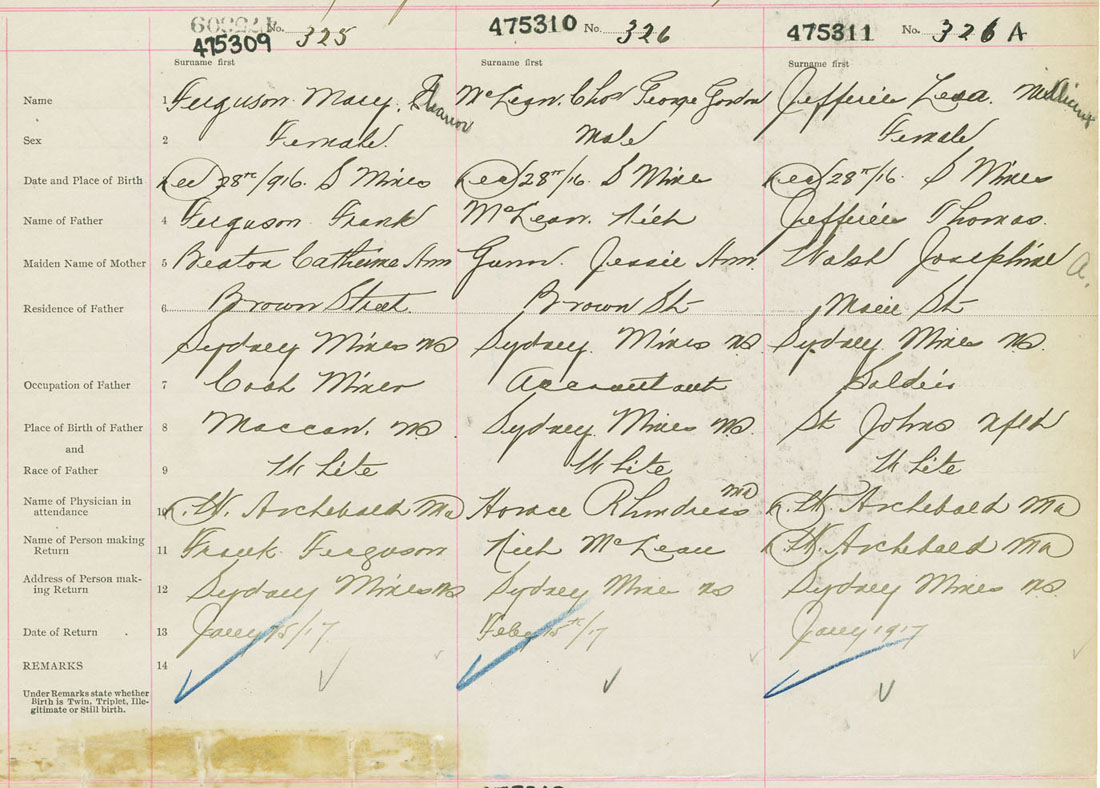 475309 No. 325
475310 No. 326
475311 No. 326 A
Surname first Surname first Surname first
Name 1 Ferguson. Mary. Eleanor McLean. Chas George Gordon Jefferies Lexa. William
Sex 2 Female. Male Female
Date and Place of Birth Dec 28th/916. S Mines Dec 28th/16. S Mines Dec 28th/16. S Mines
Name of Father 4 Ferguson Frank McLean. Rich Jefferies Thomas.
Maiden Name of Mother 5 Beaton Catherine Ann Gunn. Jessie Ann. Walsh Josephine A.
Residence of Father 6 Brown Street. Brown St St
Sydney Mines NS Sydney Mines NS. Sydney Mines NS.
Occupation of Father 7 Coal Miner Accountant Soldier
Place of Birth of Father 8 Maccan. NS Sydney Mines NS. St Johns Nfld
and
Race of Father 9 White White White
Name of Physician in
attendance 10 Archibald MD Horace Rhindress MD Archibald MD
Name of Person making
Return 11 Frank Ferguson Rich McLean Archibald MD
Address of Person mak-
ing Return 12 Sydney Mines NS Sydney Mines NS Sydney Mines NS.
Date of Return 13 Jany 15/17 Feby 15th/17 Jany 1917
REMARKS 14
Under Remarks state whether
Birth is Twin, Triplet, Ille-
gitimate or Still birth.